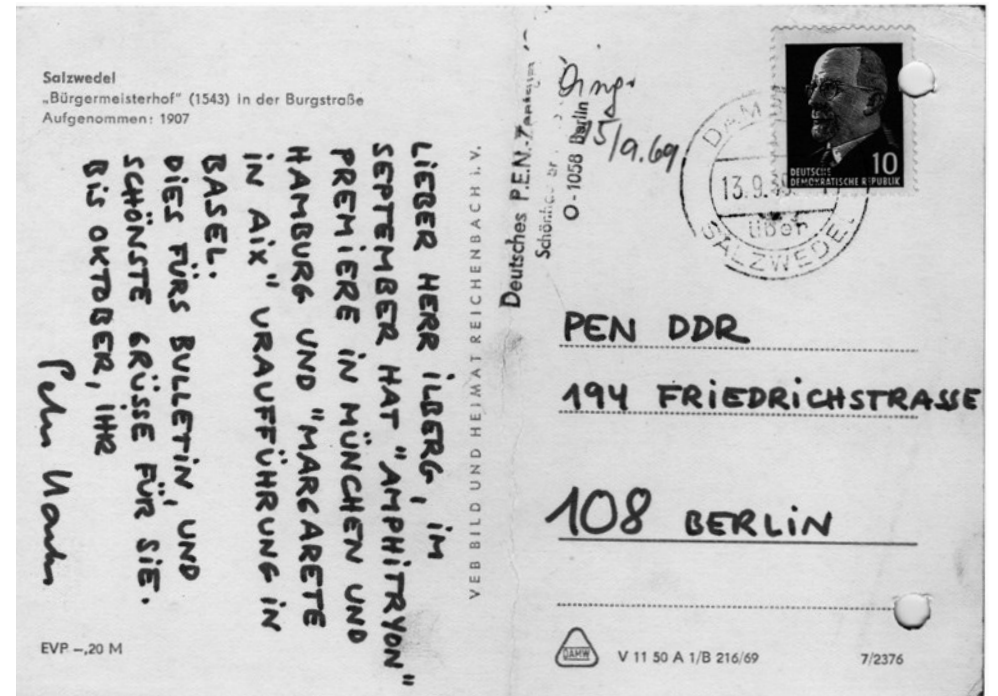 Salzwedel
„Bürgermeisterhof“ (1543) in der Burgstraße
Aufgenommen: 1907
LIEBER HERR ILBERG, IM
SEPTEMBER HAT "AMPHITRYON"
PREMIERE IN MÜNCHEN UND
HAMBURG UND "MARGARETE
IN AIX" URAUFFÜHRUNG IN
BASEL.
DIES FÜRS BULLETIN, UND
SCHÖNSTE GRÜSSE FÜR SIE.
BIS OKTOBER, IHR
EVP –,20 M
VEB BILD UND HEIMAT REICHENBACH I. V.
Deutsches P.E.N.-
O-1058 Berlin
15/9.69
DEUTSCHE
DEMOKRATISCHE REPUBLIK
10
13.9.
über
SALZWEDEL
PEN DDR
194 FRIEDRICHSTRASSE
108 BERLIN
DAMW
V 11 50 A 1/B 216/69
7/2376